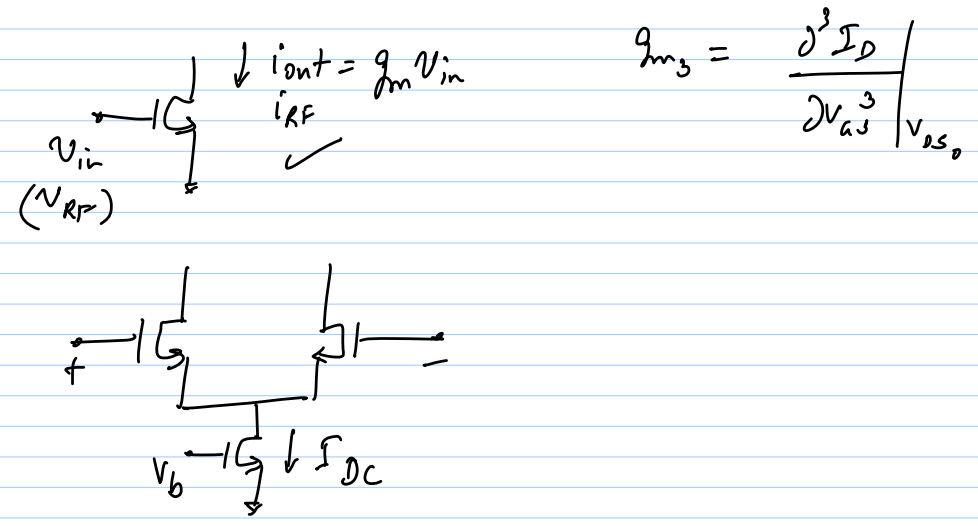 i_out = g_m v_in
i_RF
v_in
(v_RF)
g_m3 = ∂³I_D / ∂V_GS³ | V_DS0
+
−
V_b
I_DC